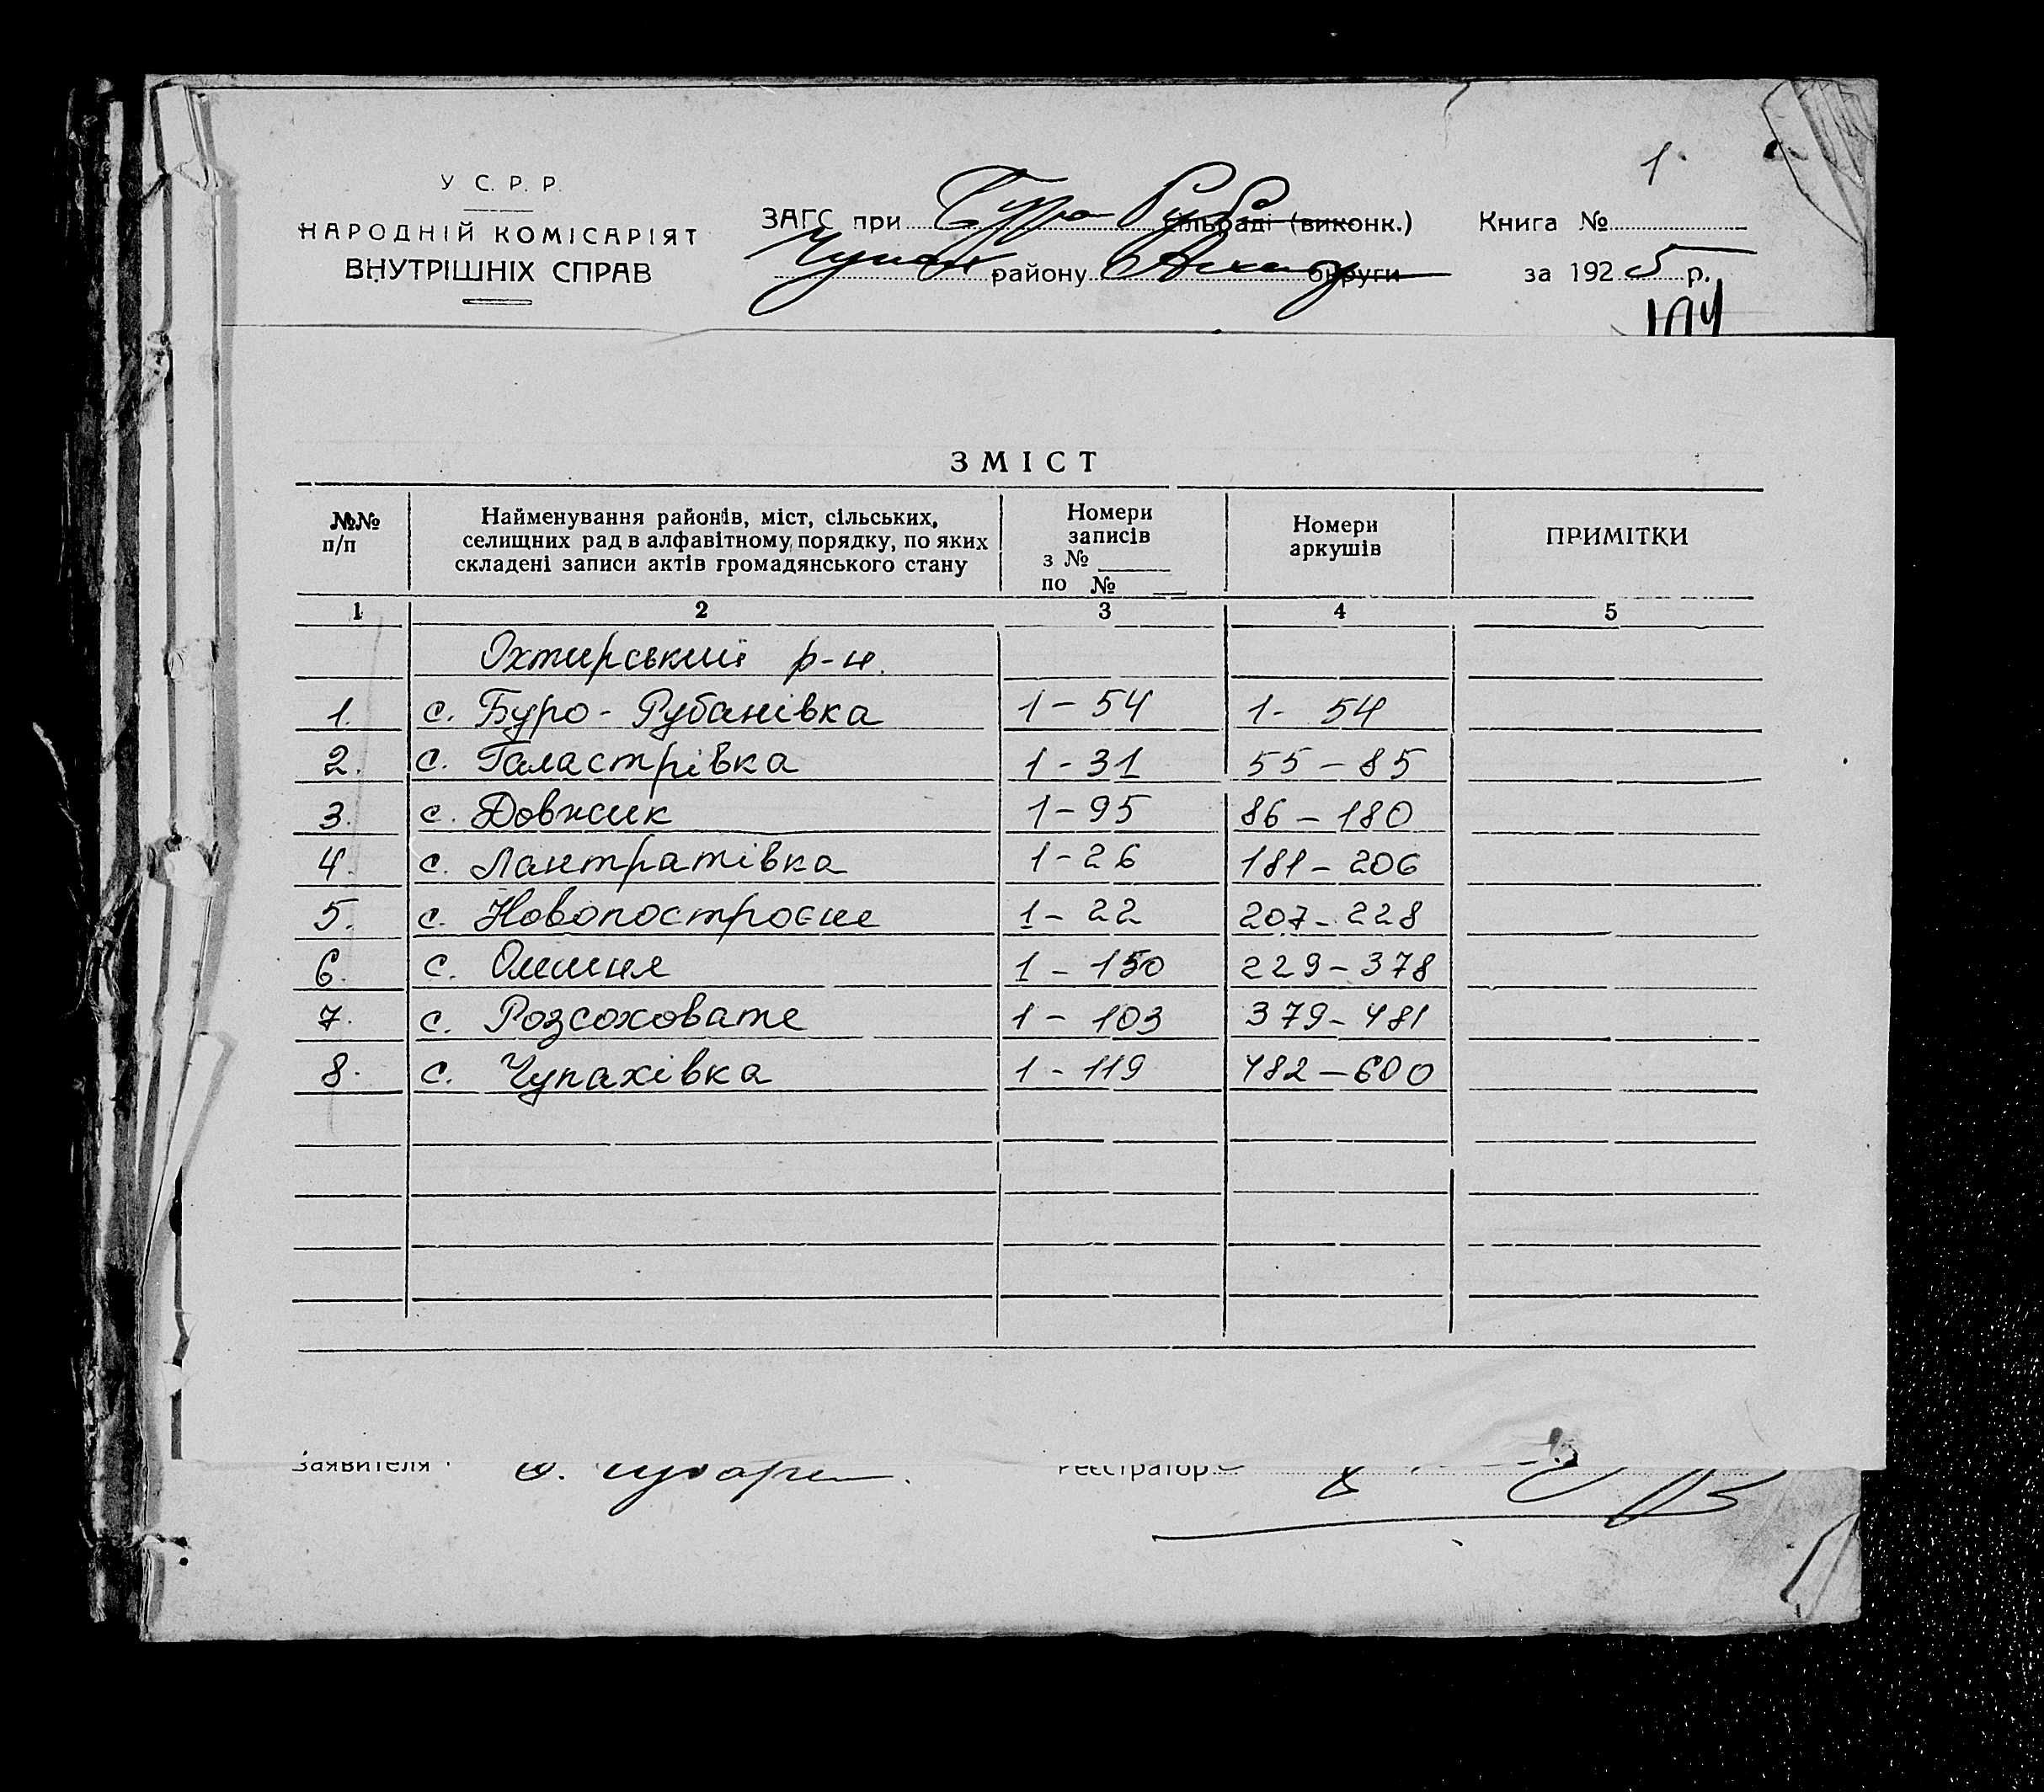 1.
У С. Р. Р.
НАРОДНІЙ КОМІСАРІЯТ
ВНУТРІШНІХ СПРАВ
ЗАГС при Буро Руб сільраді (виконк.)
Чупах району округи
Книга №
за 1925 р.
ЗМІСТ
№№ п/п
Найменування районів, міст, сільських,
селищних рад в алфавітному порядку, по яких
складені записи актів громадянського стану
Номери
записів
з №
по №
Номери
аркушів
ПРИМІТКИ
1 2 3 4 5
Охтирський р-н.
1. с. Буро-Рубанівка 1-54 1-54
2. с. Галастрівка 1-31 55-85
3. с. Довжик 1-95 86-180
4. с. Лантратівка 1-26 181-206
5. с. Новопостроєне 1-22 207-228
6. с. Олешня 1-150 229-378
7. с. Розсоховате 1-103 379-481
8. с. Чупахівка 1-119 482-600
Заявителя
Реєстратор